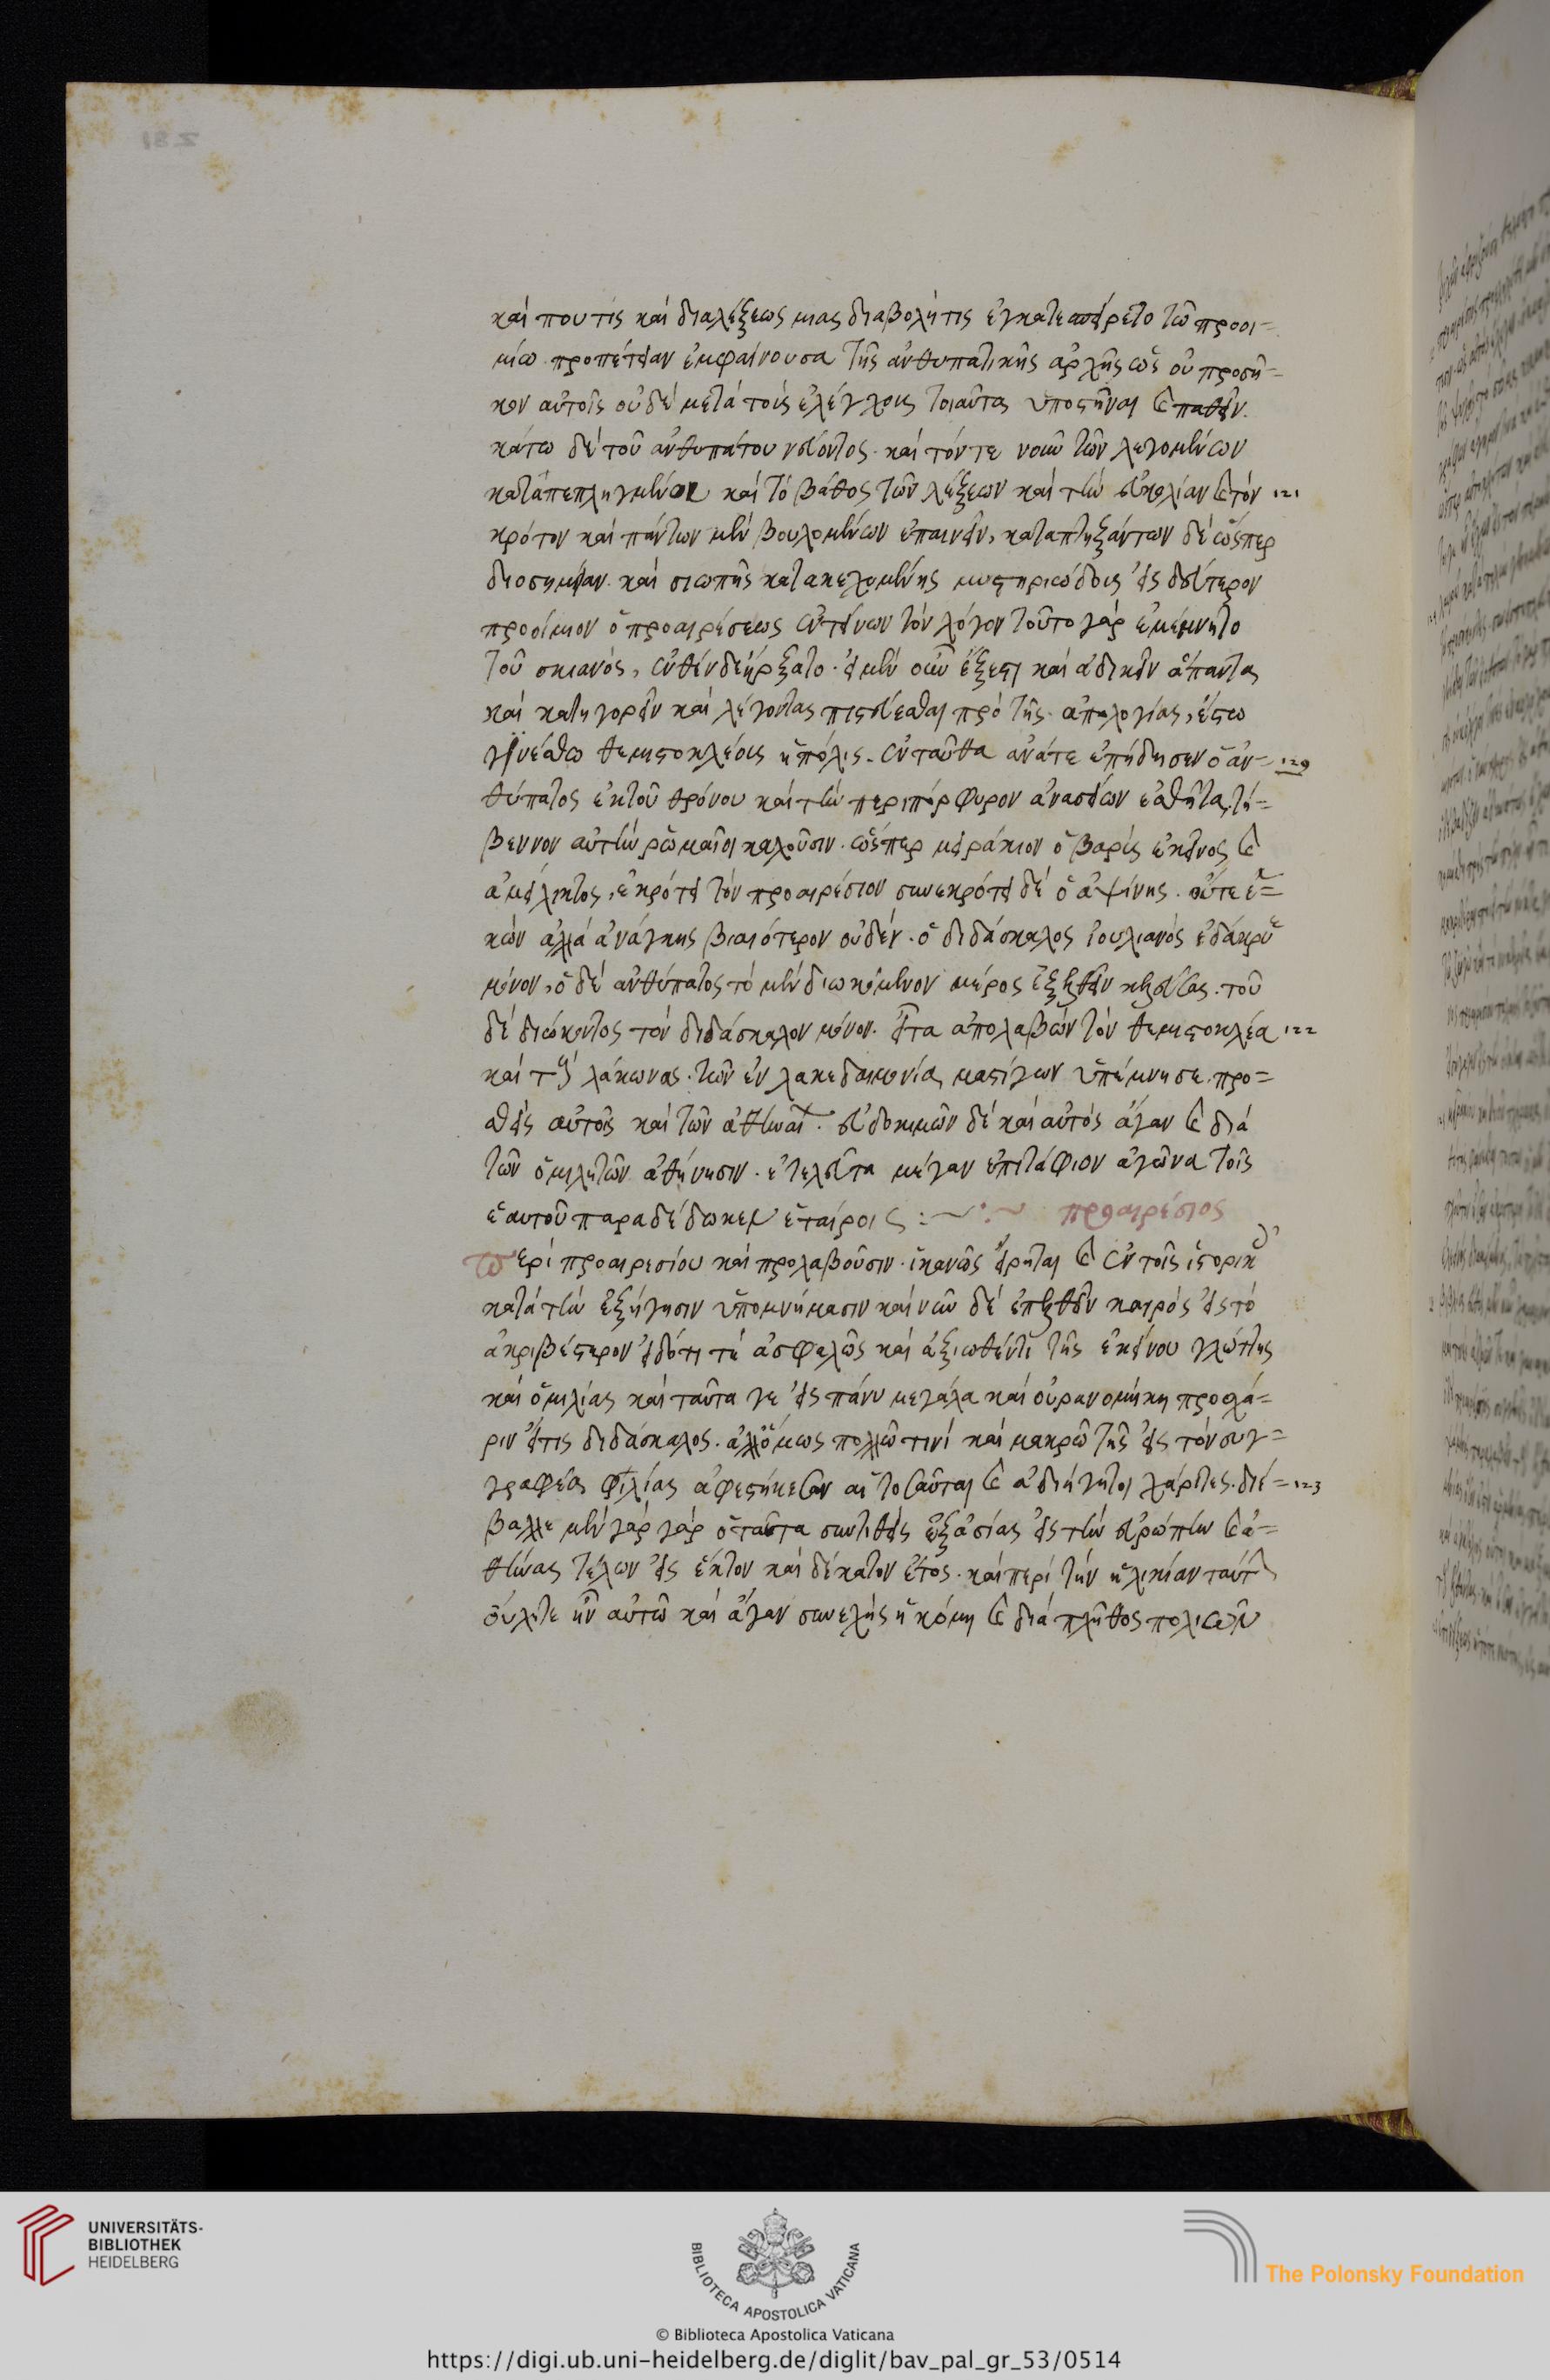 καί που τίς καί διαλέξεως μιας διαβολή τις ἐγκατεσπείρετο τῶ προοι=
μίω προπέτειαν ἐμφαίνουσα τῆς ἀνθυπατικῆς ἀρχῆς ὡς οὐ προσῆ=
κον αὐτοῖς οὐδέ μετά τούς ἐλέγχους τοιαῦτα ὑποστῆναι καὶ παθεῖν.
κάτω δέ τοῦ ἀνθυπάτου νεύοντος. καί τόν τε νοῦν τῶν λεγομένων
καταπεπληγμένου καί τό βάθος τῶν λέξεων καί τήν εὐκολίαν καὶ τόν 121
κρότον καί πάντων μέν βουλομένων ἐπαινεῖν, καταπτηξάντων δέ ὥσπερ
διοσημείαν. καί σιωπῆς κατακεχυμένης μυστηριώδους εἰς δεύτερον
προοίμιον ὁ προαιρέσεως ἐντείνων τόν λόγον τοῦτο γάρ ἐμέμνητο
τοῦ σκιανός, ἐνθένδε ἤρξατο. εἰ μέν οὖν ἔξεστι καί ἀδικεῖν ἅπαντα
καί κατηγορεῖν καί λέγοντας πιστεύεσθαι πρό τῆς ἀπολογίας, ἔστω
γινέσθω θεμιστοκλέους ἡ πόλις. ἐνταῦθα ἀνά τε ἐπήδησεν ὁ ἀν= 129
θύπατος ἐκ τοῦ θρόνου καί τήν περιπόρφυρον ἀνασείων ἐσθῆτα, τή=
βεννον αὐτήν ῥωμαῖοι καλοῦσιν. ὥσπερ μειράκιον ὁ βαρύς ἐκεῖνος καὶ
ἀμείλικτος, ἐκρότει τόν προαιρέσιον συνεκρότει δέ ὁ ἀψίνης. οὔτε ἑ=
κών ἀλλά ἀνάγκης βιαιότερον οὐδέν. ὁ διδάσκαλος ἰουλιανός ἐδάκρυε
μόνον, ὁ δέ ἀνθύπατος τό μέν διωκόμενον μέρος ἐξελθεῖν κελεύσας. τοῦ
δέ διώκοντος τόν διδάσκαλον μόνον. εἶτα ἀπολαβών τόν θεμιστοκλέα 122
καί τούς λάκωνας. τῶν ἐν λακεδαιμονία μαστίγων ὑπέμνησε. προ=
σθείς αὐτοῖς καί τῶν ἀθήναι. εὐδοκιμῶν δέ καί αὐτός ἄγαν καὶ διά
τῶν ὁμιλητῶν ἀθήνησιν. ἐτελεύτα μέγαν ἐπιτάφιον ἀγῶνα τοῖς
ἑαυτοῦ παραδέδωκεν ἑταίροις :~·:~ προαιρέσιος
Περί προαιρεσίου καί προλαβοῦσιν. ἱκανῶς εἴρηται καὶ ἐν τοῖς ἱστορικοῖς
κατά τήν ἐξήγησιν ὑπομνήμασιν καί νῦν δέ ἐπελθεῖν καιρός εἰς τό
ἀκριβέστερον εἰδότι τέ ἀσφαλῶς καί ἀξιωθέντι τῆς ἐκείνου γλώττης
καί ὁμιλίας καί ταῦτα γε εἰς πάνυ μεγάλα καί οὐρανομήκη πρὸς χά=
ριν εἴτις διδάσκαλος. ἀλλ' ὅμως πολλῶ τινί καί μακρῶ τῆς εἰς τόν συγ=
γραφέα φιλίας ἀφεστήκεσαν αἱ τοσαῦται καὶ ἀδιήγητοι χάριτες. διέ= 123
βαλλε μέν γάρ γάρ ὁ ταῦτα συντιθείς ἐξ ἀσίας εἰς τήν εὐρώπην καὶ ἀ=
θήνας τέλων εἰς ἕκτον καί δέκατον ἔτος. καί περί τήν ἡλικίαν ταύτην
οὖλη τε ἦν αὐτῶ καί ἄγαν συνεχής ἡ κόμη καὶ διά πλῆθος πολιῶν
UNIVERSITÄTS-
BIBLIOTHEK
HEIDELBERG
BIBLIOTECA APOSTOLICA VATICANA
The Polonsky Foundation
© Biblioteca Apostolica Vaticana
https://digi.ub.uni-heidelberg.de/diglit/bav_pal_gr_53/0514